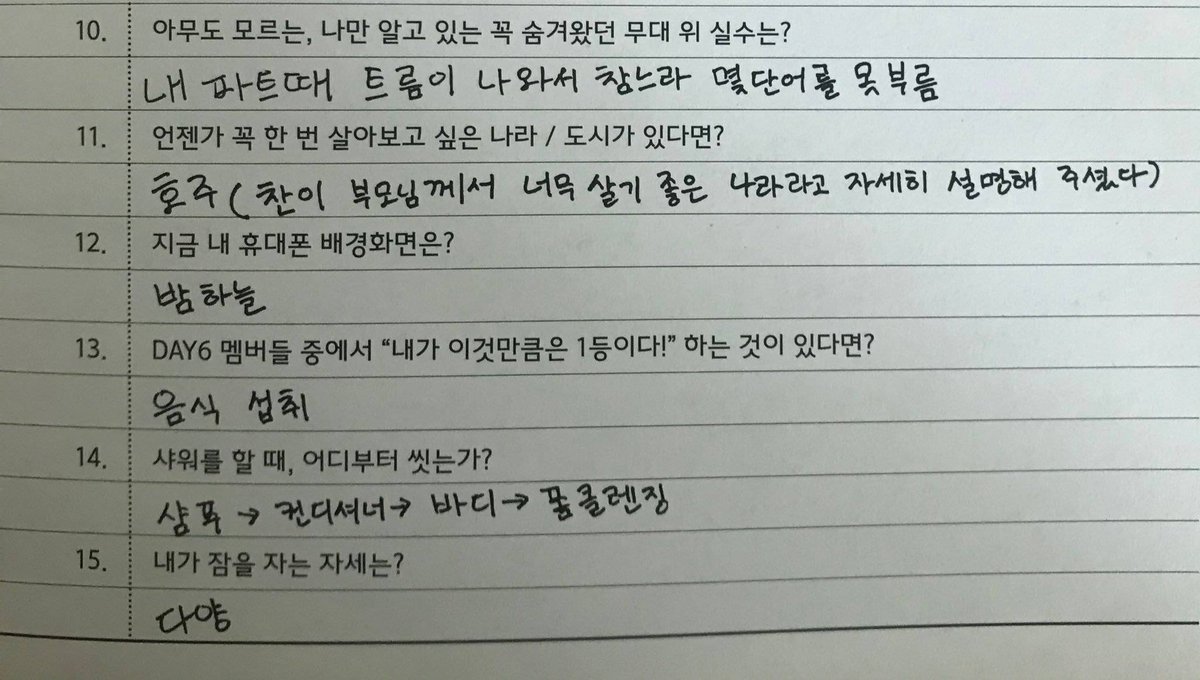 10. 아무도 모르는, 나만 알고 있는 꼭 숨겨왔던 무대 위 실수는?
내 파트때 트름이 나와서 참느라 몇단어를 못부름
11. 언젠가 꼭 한 번 살아보고 싶은 나라 / 도시가 있다면?
호주 (찬이 부모님께서 너무 살기 좋은 나라라고 자세히 설명해 주셨다)
12. 지금 내 휴대폰 배경화면은?
밤하늘
13. DAY6 멤버들 중에서 “내가 이것만큼은 1등이다!” 하는 것이 있다면?
음식 섭취
14. 샤워를 할 때, 어디부터 씻는가?
샴푸 → 컨디셔너 → 바디 → 폼클렌징
15. 내가 잠을 자는 자세는?
다양